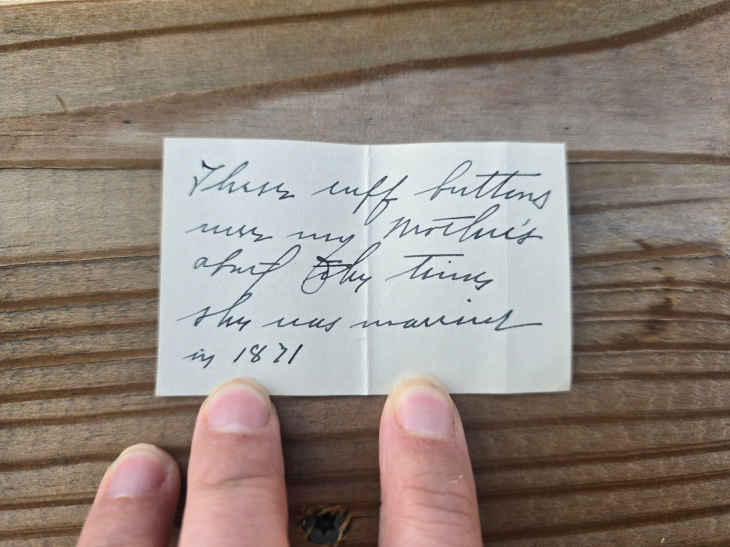 These cuff buttons
were my Mother's
about the time
she was married
in 1871